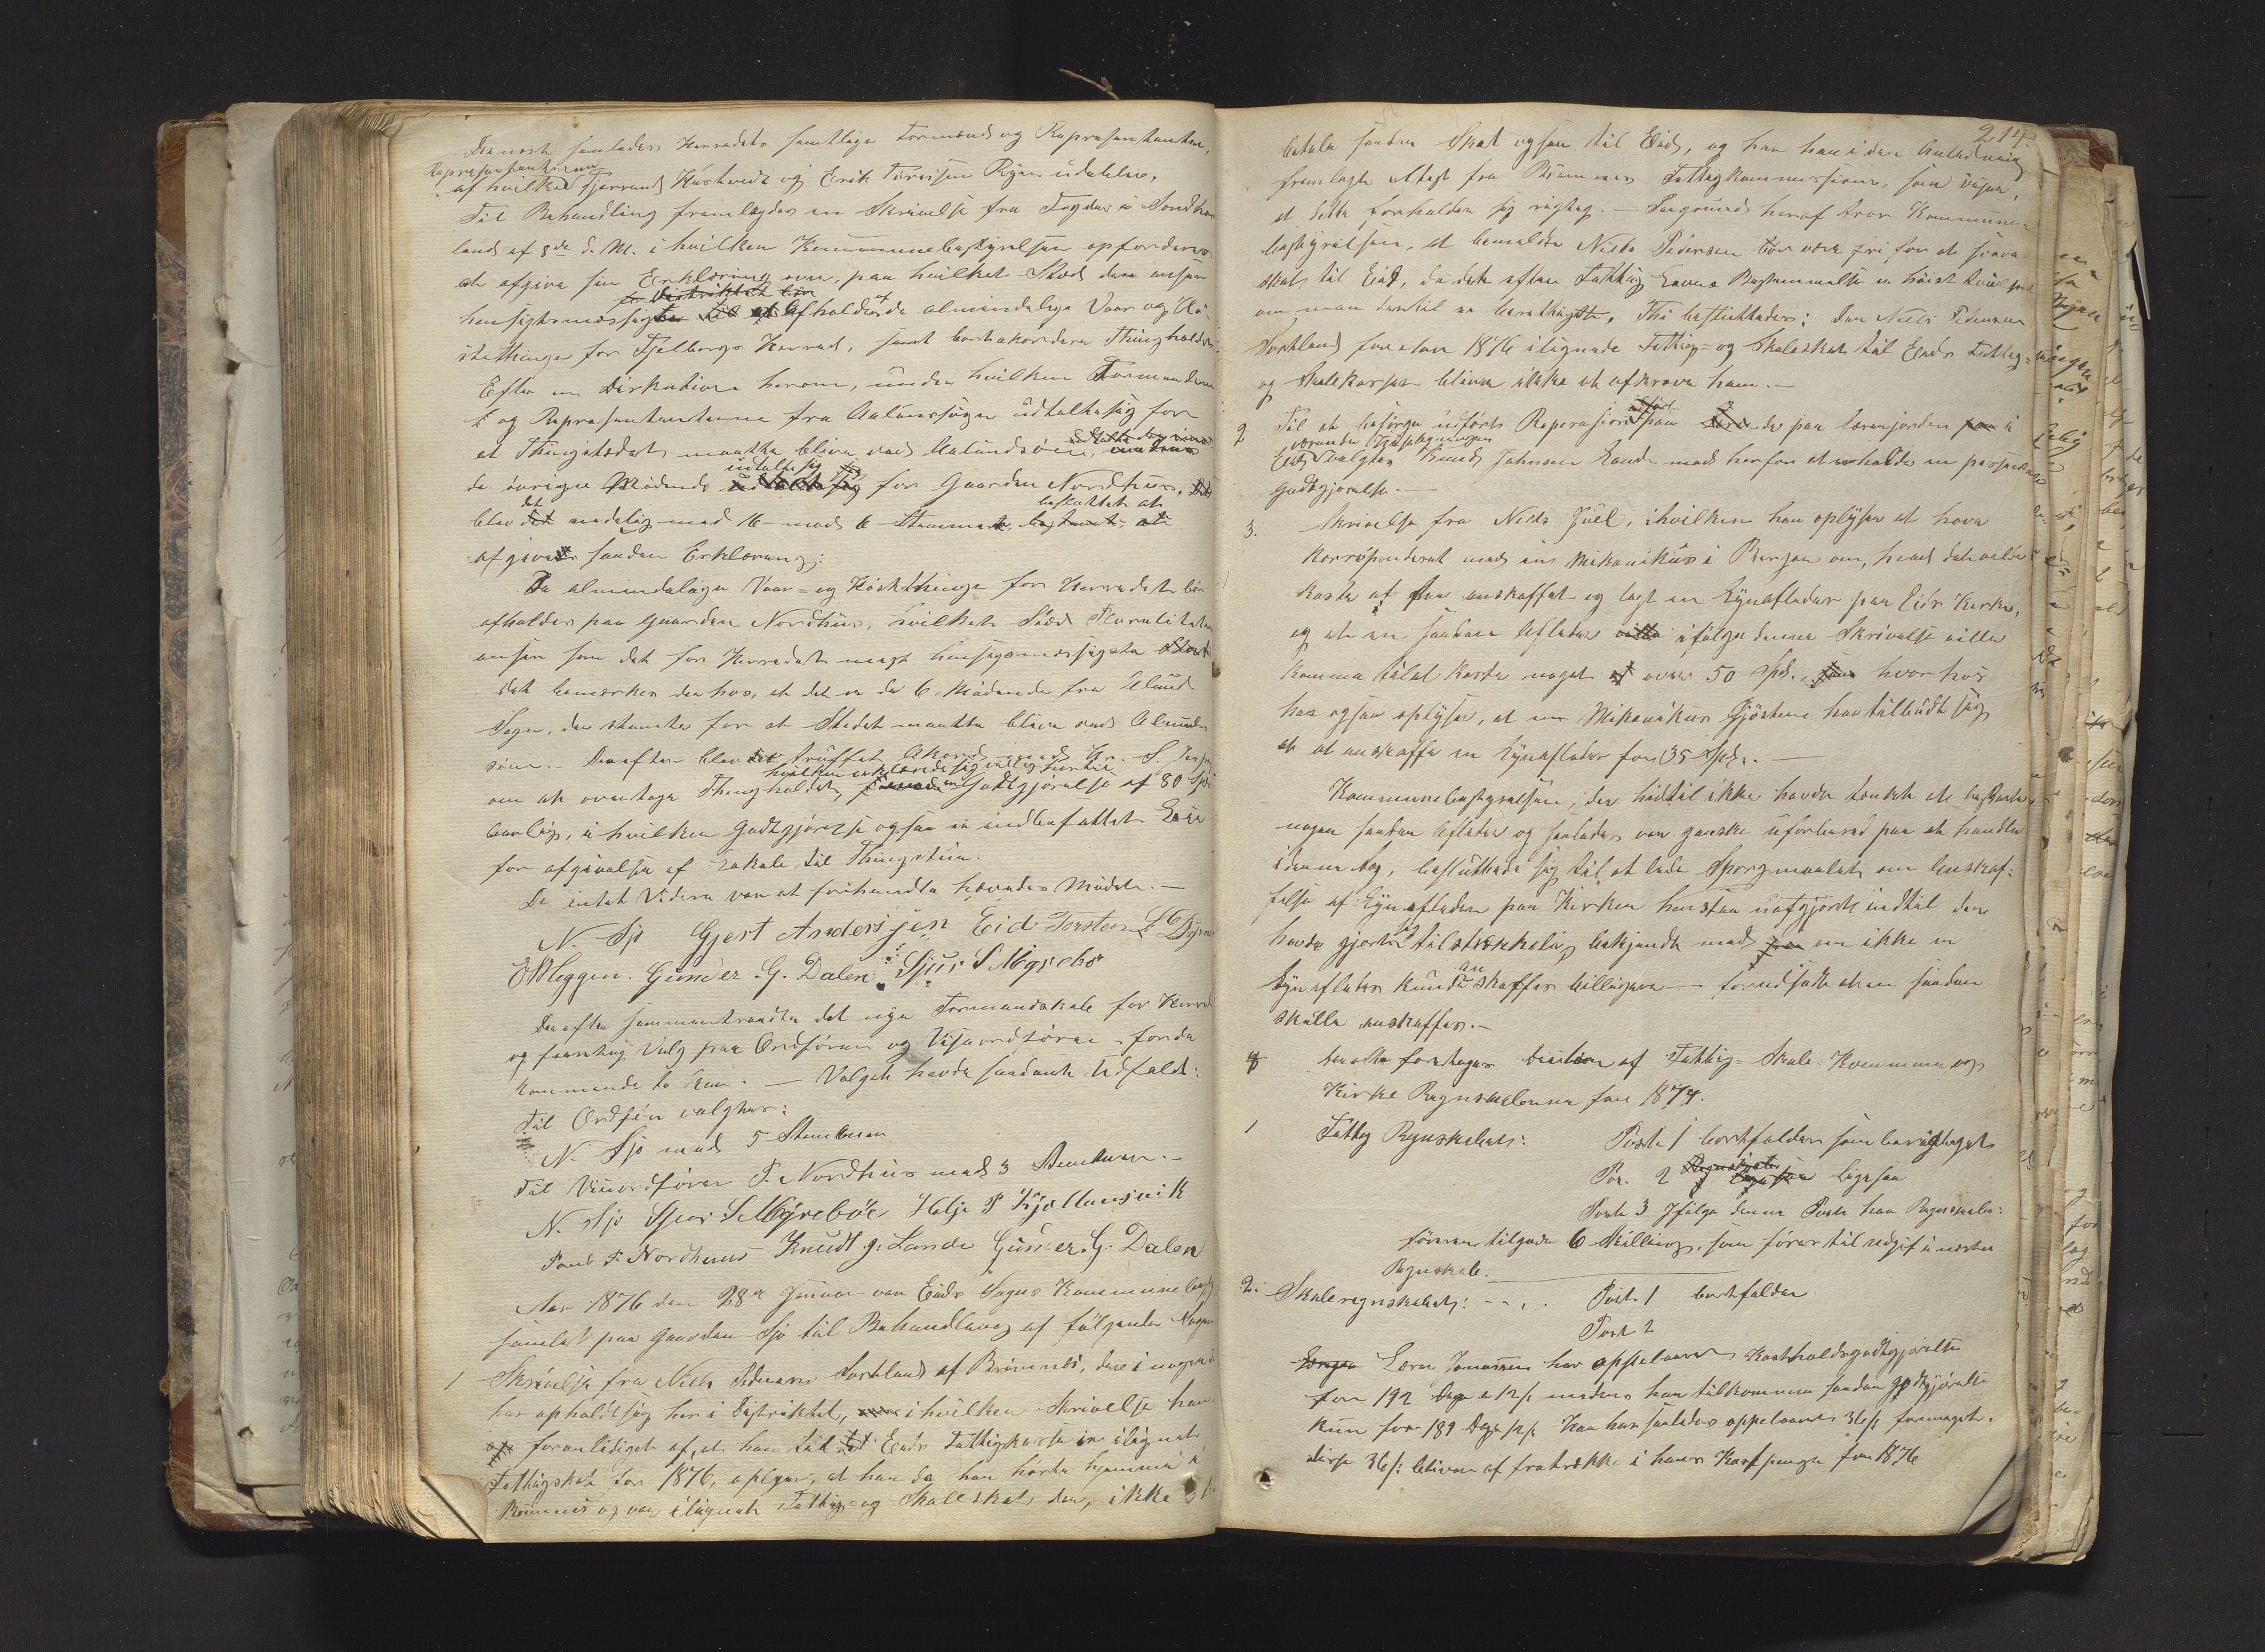 Dernæst samledes Herredets samtlige Formænd og Repræsentanter,
Repræsentanterne
af hvilke Tjerrand Hustvedt og Erik Tørrissen Ryen udeblev.
Til Behandling fremlagdes en Skrivelse fra Fogden i Søndhor-
land af 3de d. M. i hvilken Kommunebestyrelsen opfordres
at afgive sin Erklæring om, paa hvilket Sted den anser
for Distriktet bør
hensigtsmæssigt til at Afholdes de almindelige Vaar og Hø-
stethinge for Fjelbergs Herred, samt bortakordere Thingholdet.
Efter en Diskution herom, under hvilken Formændene
og Repræsentanterne fra Aalunssogn udtalte sig for
at Thingstedet maatte blive ved Aalundsøen, medens
de øvrige Mødende udtalte sig for Gaarden Nordhus,
blev det endelig med 16 mod 6 Stemmer besluttet at
afgive saadan Erklæring:
De almindelige Vaar- og Høstthinge for Herredet bør
afholdes paa Gaarden Nordhus, hvilket Sted Pluraliteten
anser som det for Herredet mest hensigtsmæssigste Sted
det bemærkes derhos, at det er de 6 Mødende fra Ølund
Sogn, der stemte for at Stedet maatte blive ved Ølunds-
søen. Derefter blev truffet Akord med Hr. S.
hvilken erklærede sig villig hertil
om at overtage Thingholdet, for en Godtgjørelse af 80 Spd
aarlig, i hvilken Godtgjørelse ogsaa er indbefattet Leie
for afgivelse af Lokale til Thingstue.
Da intet Videre var at forhandle hævedes Mødet. —
N. Sjo Gjert Andersjen Eid Torsten L Dyrne
E Heggen. Gunder G. Dalen. Sjur S Myrebø
Derefter sammentraadte det nye Formandskab for Herredet
og foretog Valg paa Ordfører og Viseordfører for de
kommende to Aar. — Valget havde saadant Udfald:
Til Ordfører valgtes:
N. Sjo med 5 Stemmer
Til Viseordfører P. Nordhus med 3 Stemmer. —
N. Sjo Sjur S Myrebøe, Helje P Kjøllesvik
Poul P. Nordhuus Knudt J. Lande Gunder. G. Dalen
Aar 1876 den 28de Januar var Eids Sogns Kommunebesty
samlet paa Gaarden Sjo til Behandling af følgende Sager
1 Skrivelse fra Niels Pedersen Sortland af Brimnes, der i nogen
har opholdt sig her i Distriktet, i hvilken Skrivelse han
foranlediget af, at han til Eids Fattigkasse er ilignet
Fattigskat for 1876, oplyser, at han da han hørte hjemme i
Brimnes og var ilignet Fattig- og Skoleskat der, ikke
214
betale saadan Skat ogsaa til Eid, og han har i den Anledning
fremlagt Attest fra Brimnes Fattigkommission, som viser,
at dette forholder sig rigtig. — Paagrund heraf tror Kommune-
bestyrelsen, at bemeldte Niels Pedersen bør være fri for at svare
Skat til Eid, da det efter Fattig-Lovens Bestemmelse er høist tvivlsomt
om man dertil er berettiget. Thi besluttedes: Den Niels Pedersen
Sortland for Aar 1876 ilignede Fattig- og Skoleskat til Eids Fattig-
og Skolekasse bliver ikke at afkræve ham. —
2 Til at besørge udført Reperasion paa de paa Lærerjorden i
Eid værende Husebygninger
valgtes Knud Johnsen Lande mod herfor at erholde en passende
Godtgjørelse. —
3. Skrivelse fra Niels Juel, i hvilken han oplyser at have
korrisponderet med en Mekanikus i Bergen om, hvad det vilde
koste at faa anskaffet og lagt en Lynafleder paa Eids Kirke,
og at en saadan Afleder ifølge denne Skrivelse ville
komme til at koste noget over 50 Spd., hvorhos
han ogsaa oplyser, at en Mekanikus Gjøsteen har tilbudt sig
at anskaffe en Lynafleder for 35 Spd. —
Kommunebestyrelsen, der hidtil ikke havde tænkt at bekoste
nogen saadan Afleder og saaledes var ganske uforberedt paa at handle
i denne Sag, besluttede sig til at lade Spørgsmaalet om Anskaf-
felse af Lynafleder paa Kirken henstaa uafgjort indtil den
havde gjort sig tilstrækkelig bekjendt med om ikke en
Lynafleder kunde anskaffes billigere — forudsat at en saadan
skulle anskaffes. —
4 foretoges Decision af Fattig- Skole- Kommune og
Kirke Regnskaberne for 1874.
1 Fattig Regnskabet: Post 1 bortfalder som berigtiget
Por. 2 ligesaa
Post 3 Ifølge denne Post har Regnskabs-
føreren tilgode 6 Skilling, som føres til udgift i næste
Regnskab.
2. Skoleregnskabet: Post 1 bortfalder
Post 2
Lærer Jonassen har oppebaaret Kostholdsgodtgjørelse
for 192 Dage a 12 s. medens han tilkommer saadan godtgjørelse
kun for 189 Dage 12 s. Han har saaledes oppebaaret 36 s. formeget.
disse 36 s. bliver at fratrække i hans Kostpenge for 1876